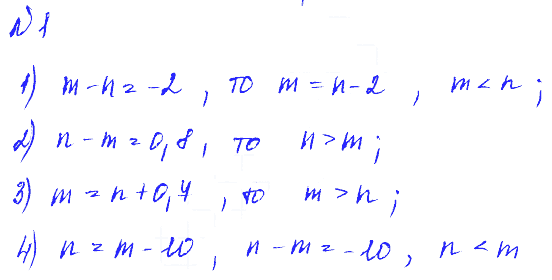 №1
1) m - n = -2 , то m = n - 2 , m < n ;
2) n - m = 0,8 , то n > m ;
3) m = n + 0,4 , то m > n ;
4) n = m - 10 , n - m = -10 , n < m